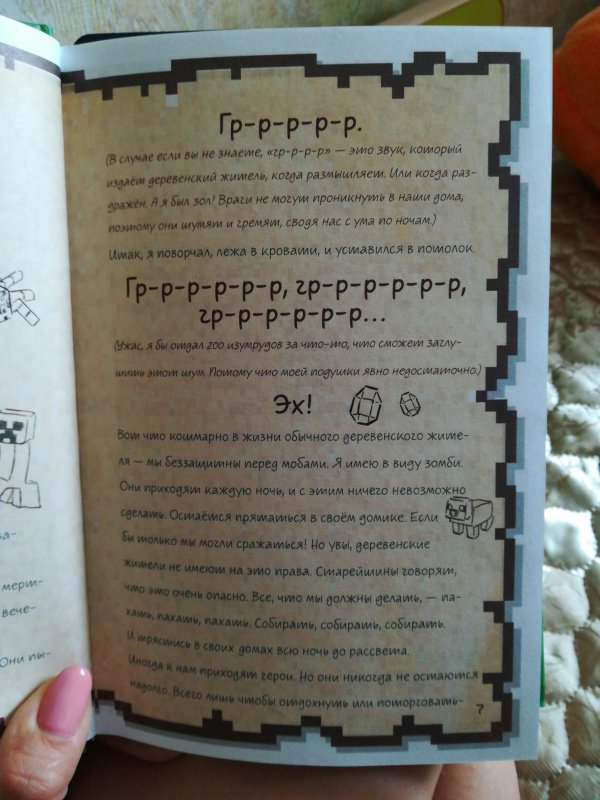 за-
мерт-
вече-
Они пы-
Гр-р-р-р-р.
(В случае если вы не знаете, «гр-р-р-р» — это звук, который
издаёт деревенский житель, когда размышляет. Или когда раз-
дражён. А я был зол! Враги не могут проникнуть в наши дома,
поэтому они шумят и гремят, сводя нас с ума по ночам.)
Итак, я поворчал, лежа в кровати, и уставился в потолок.
Гр-р-р-р-р-р, гр-р-р-р-р-р,
гр-р-р-р-р-р...
(Ужас, я бы отдал 200 изумрудов за что-то, что сможет заглу-
шить этот шум. Потому что моей подушки явно недостаточно.)
Эх!
Вот что кошмарно в жизни обычного деревенского жите-
ля — мы беззащитны перед мобами. Я имею в виду зомби.
Они приходят каждую ночь, и с этим ничего невозможно
сделать. Остаётся прятаться в своём домике. Если
бы только мы могли сражаться! Но увы, деревенские
жители не имеют на это права. Старейшины говорят,
что это очень опасно. Все, что мы должны делать, — па-
хать, пахать, пахать. Собирать, собирать, собирать.
И трястись в своих домах всю ночь до рассвета.
Иногда к нам приходят герои. Но они никогда не остаются
надолго. Всего лишь чтобы отдохнуть или поторговать-
7